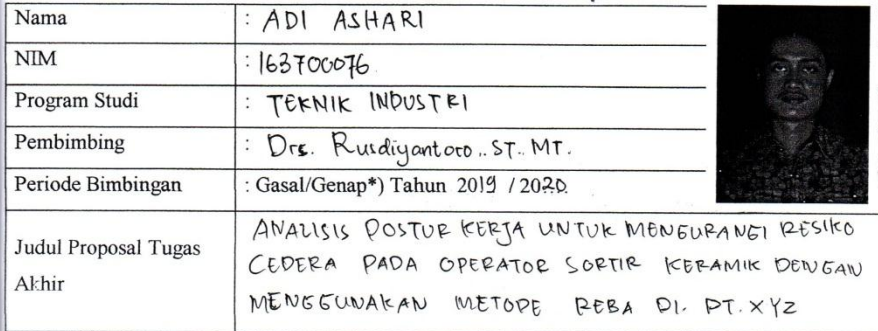 Nama : ADI ASHARI
NIM : 163700076
Program Studi : TEKNIK INDUSTRI
Pembimbing : Drs. Rusdiyantoro., ST., MT.
Periode Bimbingan : Gasal/Genap*) Tahun 2019 / 2020
Judul Proposal Tugas Akhir : ANALISIS POSTUR KERJA UNTUK MENGURANGI RESIKO
CEDERA PADA OPERATOR SORTIR KERAMIK DENGAN
MENGGUNAKAN METODE REBA DI. PT. XYZ